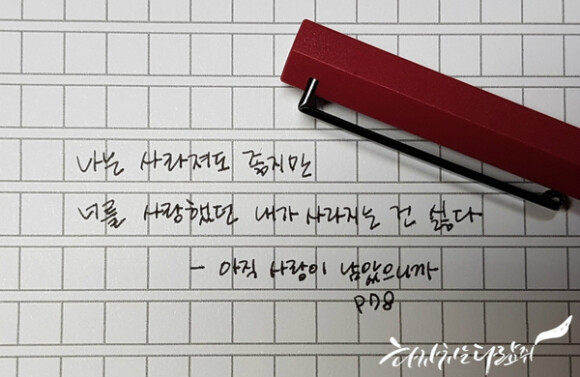 나는 사라져도 좋지만
너를 사랑했던 내가 사라지는 건 싫다
- 아직 사랑이 남았으니까
P78
허찌치는다람쥐